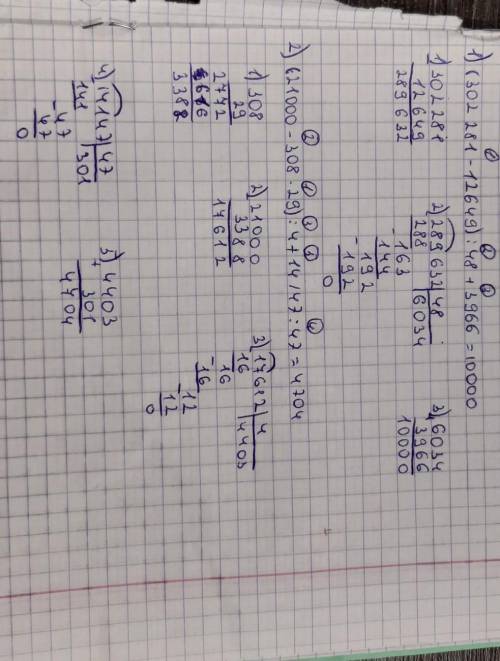 1) (302 281 - 12649) : 48 + 3966 = 10000
1) 302 281
12649
289 632
2) 289632 | 48
288 | 6034
- 163
144
- 192
192
0
3) 6034
+ 3966
10000
2) (21000 - 308 · 29) : 4 + 14147 : 47 = 4704
1) 308
29
2772
616
3388
2) 21000
3388
17612
3) 17612 | 4
16 | 4403
16
- 16
- 12
12
0
4) 14147 | 47
141 | 301
- 47
47
0
5) 4403
+ 301
4704